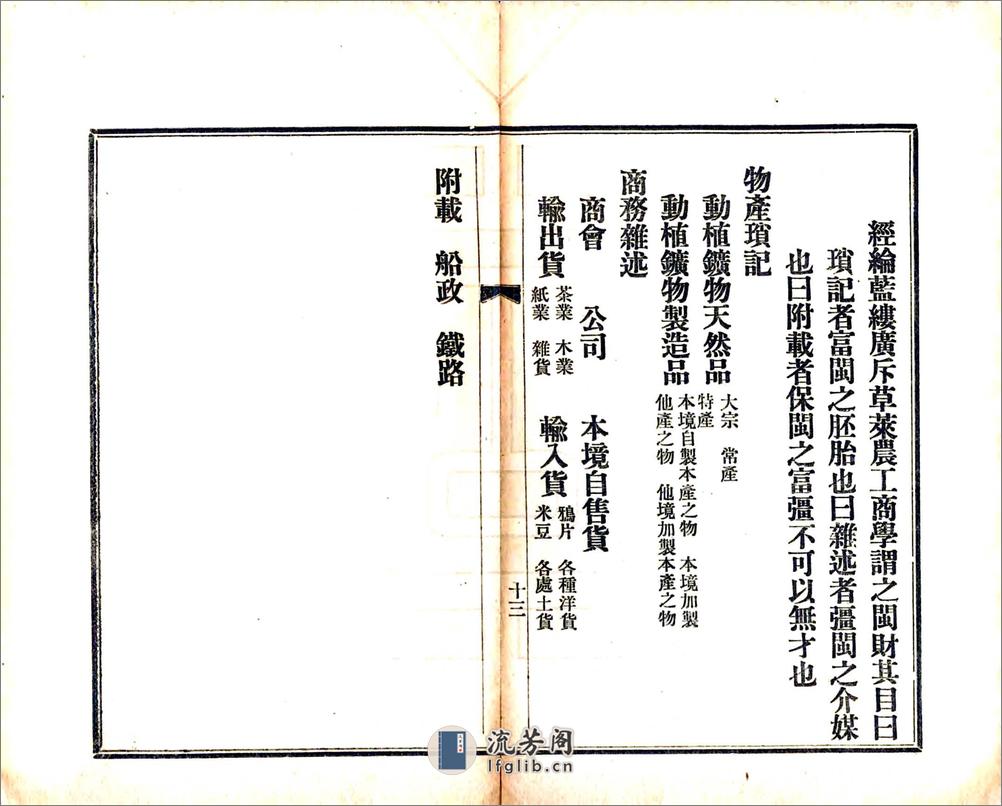 經綸藍縷廣斥草萊農工商學謂之閩財其目曰
瑣記者富閩之胚胎也曰雜述者彊閩之介媒
也曰附載者保閩之富彊不可以無才也
物產瑣記
動植鑛物天然品 大宗 常產
特產
動植鑛物製造品 本境自製本產之物 本境加製
他產之物 他境加製本產之物
商務雜述
商會 公司 本境自售貨
輸出貨 茶業 木業
紙業 雜貨
輸入貨 鴉片 各種洋貨
米豆 各處土貨
十三
附載 船政 鐵路
流芳阁
lfglib.cn